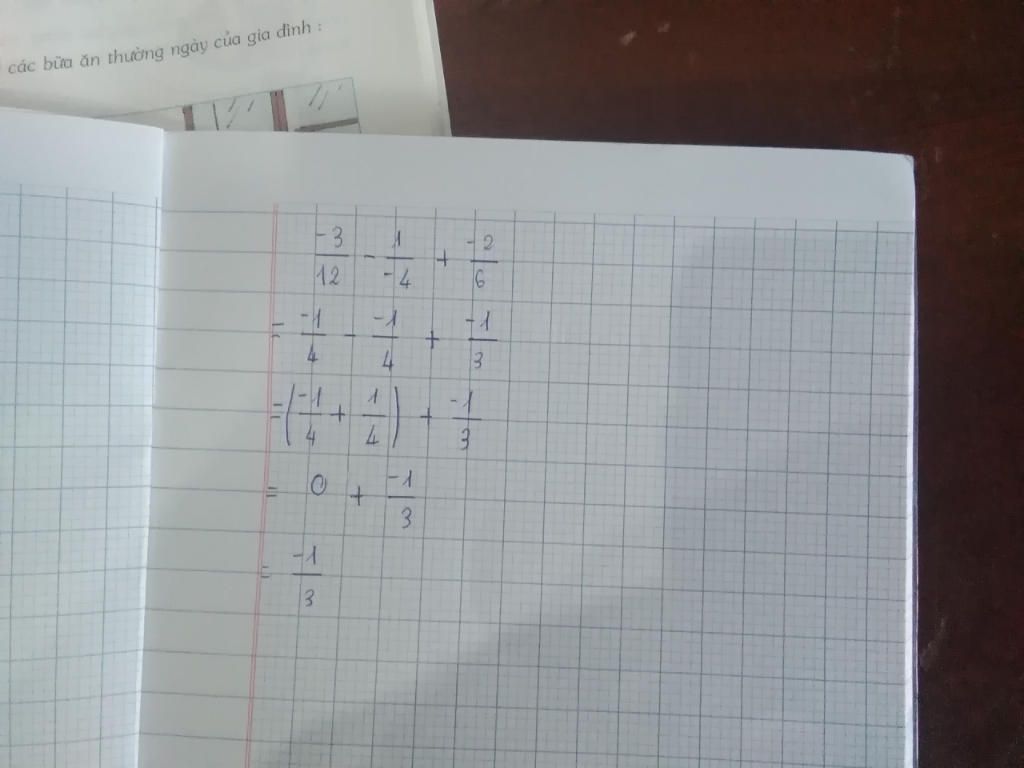 các bữa ăn thường ngày của gia đình :
-3/12 - 1/-4 + -2/6
= -1/4 - -1/4 + -1/3
= (-1/4 + 1/4) + -1/3
= 0 + -1/3
= -1/3